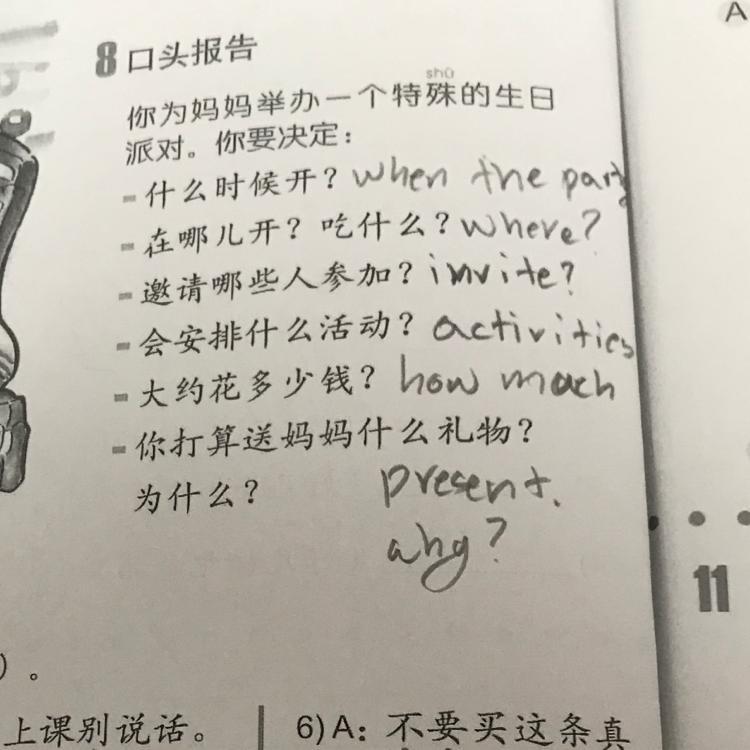 A
8 口头报告
shū
你为妈妈举办一个特殊的生日
派对。你要决定：
- 什么时候开？ when the party
- 在哪儿开？吃什么？ where?
- 邀请哪些人参加？ invite?
- 会安排什么活动？ activities
- 大约花多少钱？ how much
- 你打算送妈妈什么礼物？
为什么？ present.
why?
11
）。
上课别说话。
6) A： 不要买这条真